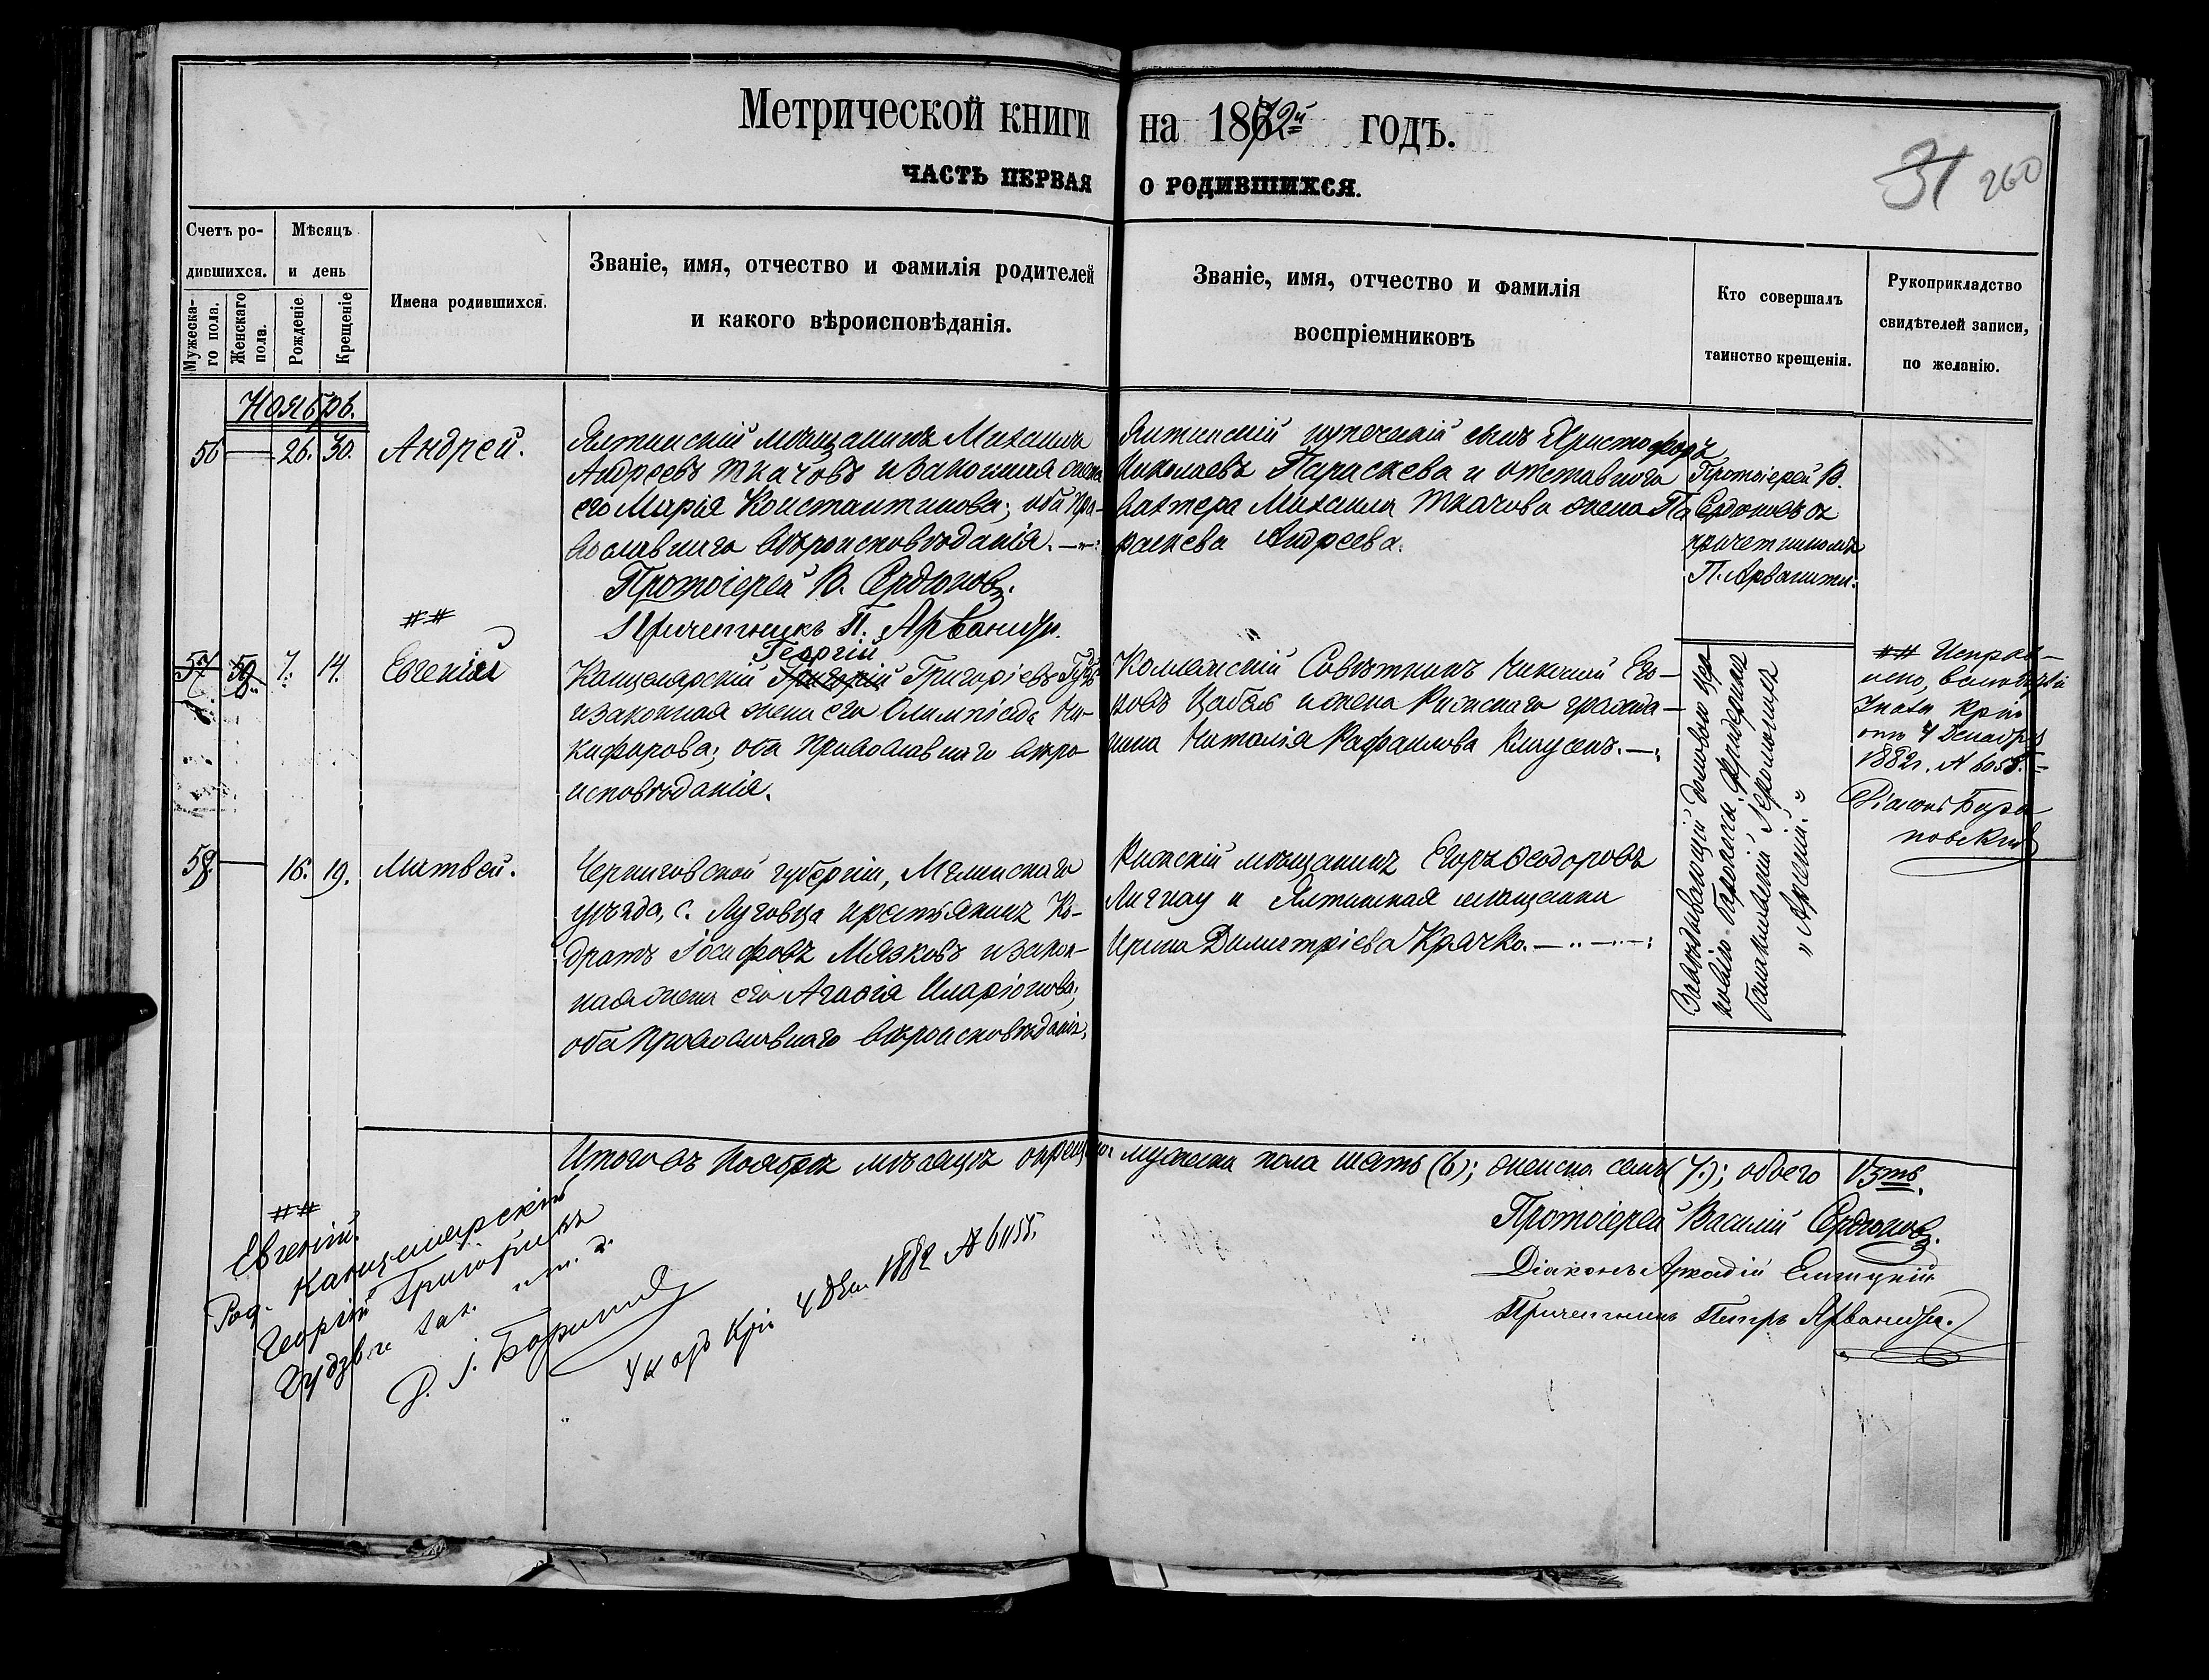 Метрической книги на 1872й годъ.
ЧАСТЬ ПЕРВАЯ О РОДИВШИХСЯ.
31 260
Счетъ ро-
дившихся.
Мужеска-
го пола.
Женскаго
пола.
Мѣсяцъ
и день
Рожденіе.
Крещеніе
Имена родившихся.
Званіе, имя, отчество и фамилія родителей
и какого вѣроисповѣданія.
Званіе, имя, отчество и фамилія
воспріемниковъ
Кто совершалъ
таинство крещенія.
Рукоприкладство
свидѣтелей записи,
по желанію.
Ноябрь.
56 — 26. 30. Андрей.
Ялтинскій мѣщанинъ Михаилъ
Андреевъ Ткачовъ и законная жена
его Марія Константинова; оба пра-
вославнаго вѣроисповѣданія.
Протоіерей В. Сердюковъ.
Причетникъ П. Арваниди.
Ялтинскій купеческій сынъ Христофоръ
Николаевъ Параскева и отставнаго
вахтера Михаила Ткачова жена Па
раскева Андреева.
Протоіерей В.
Сердюковъ съ
причетникомъ
П. Арванити.
##
57 7. 14. Евгеній
Георгій
Канцелярскій Григорій Григоріевъ
и законная жена его Олимпіада Ни-
кифорова; оба православнаго вѣро
исповѣданія.
Коллежскій Совѣтникъ Николай Его-
ровъ Цабель и жена Рижскаго гражда-
нина Наталія Рафаилова
## Исправ-
лено,
от 4 Декабря
1882 г. №
58. — 16. 19. Матвей.
Черниговской губерніи, Мглинскаго
уѣзда, с. Луговца крестьянинъ Ко-
дратъ Іосифовъ Мязковъ и закон-
ная жена его Агафія Иларіонова;
оба православнаго вѣроисповѣданія.
Рижскій мѣщанинъ Егоръ Ѳеодоровъ
и Ялтинская мѣщанка
Ирина Димитріева Крячко.
Завѣдывающій домовою цер
ковію баронессы
Іеромонахъ
"Арсеній."
Итого въ Ноябрѣ мѣсяцѣ окрещено мужеска пола шесть (6); женска семь (7.); обоего 13ть.
Протоіерей Василій Сердюковъ.
Діаконъ Аркадій
Причетникъ Петръ Арваниди.
##
Евгеній.
Род. Канцелярскій
Георгій Григорьевъ
зак. и т. д.
4 Дек. 1882 №